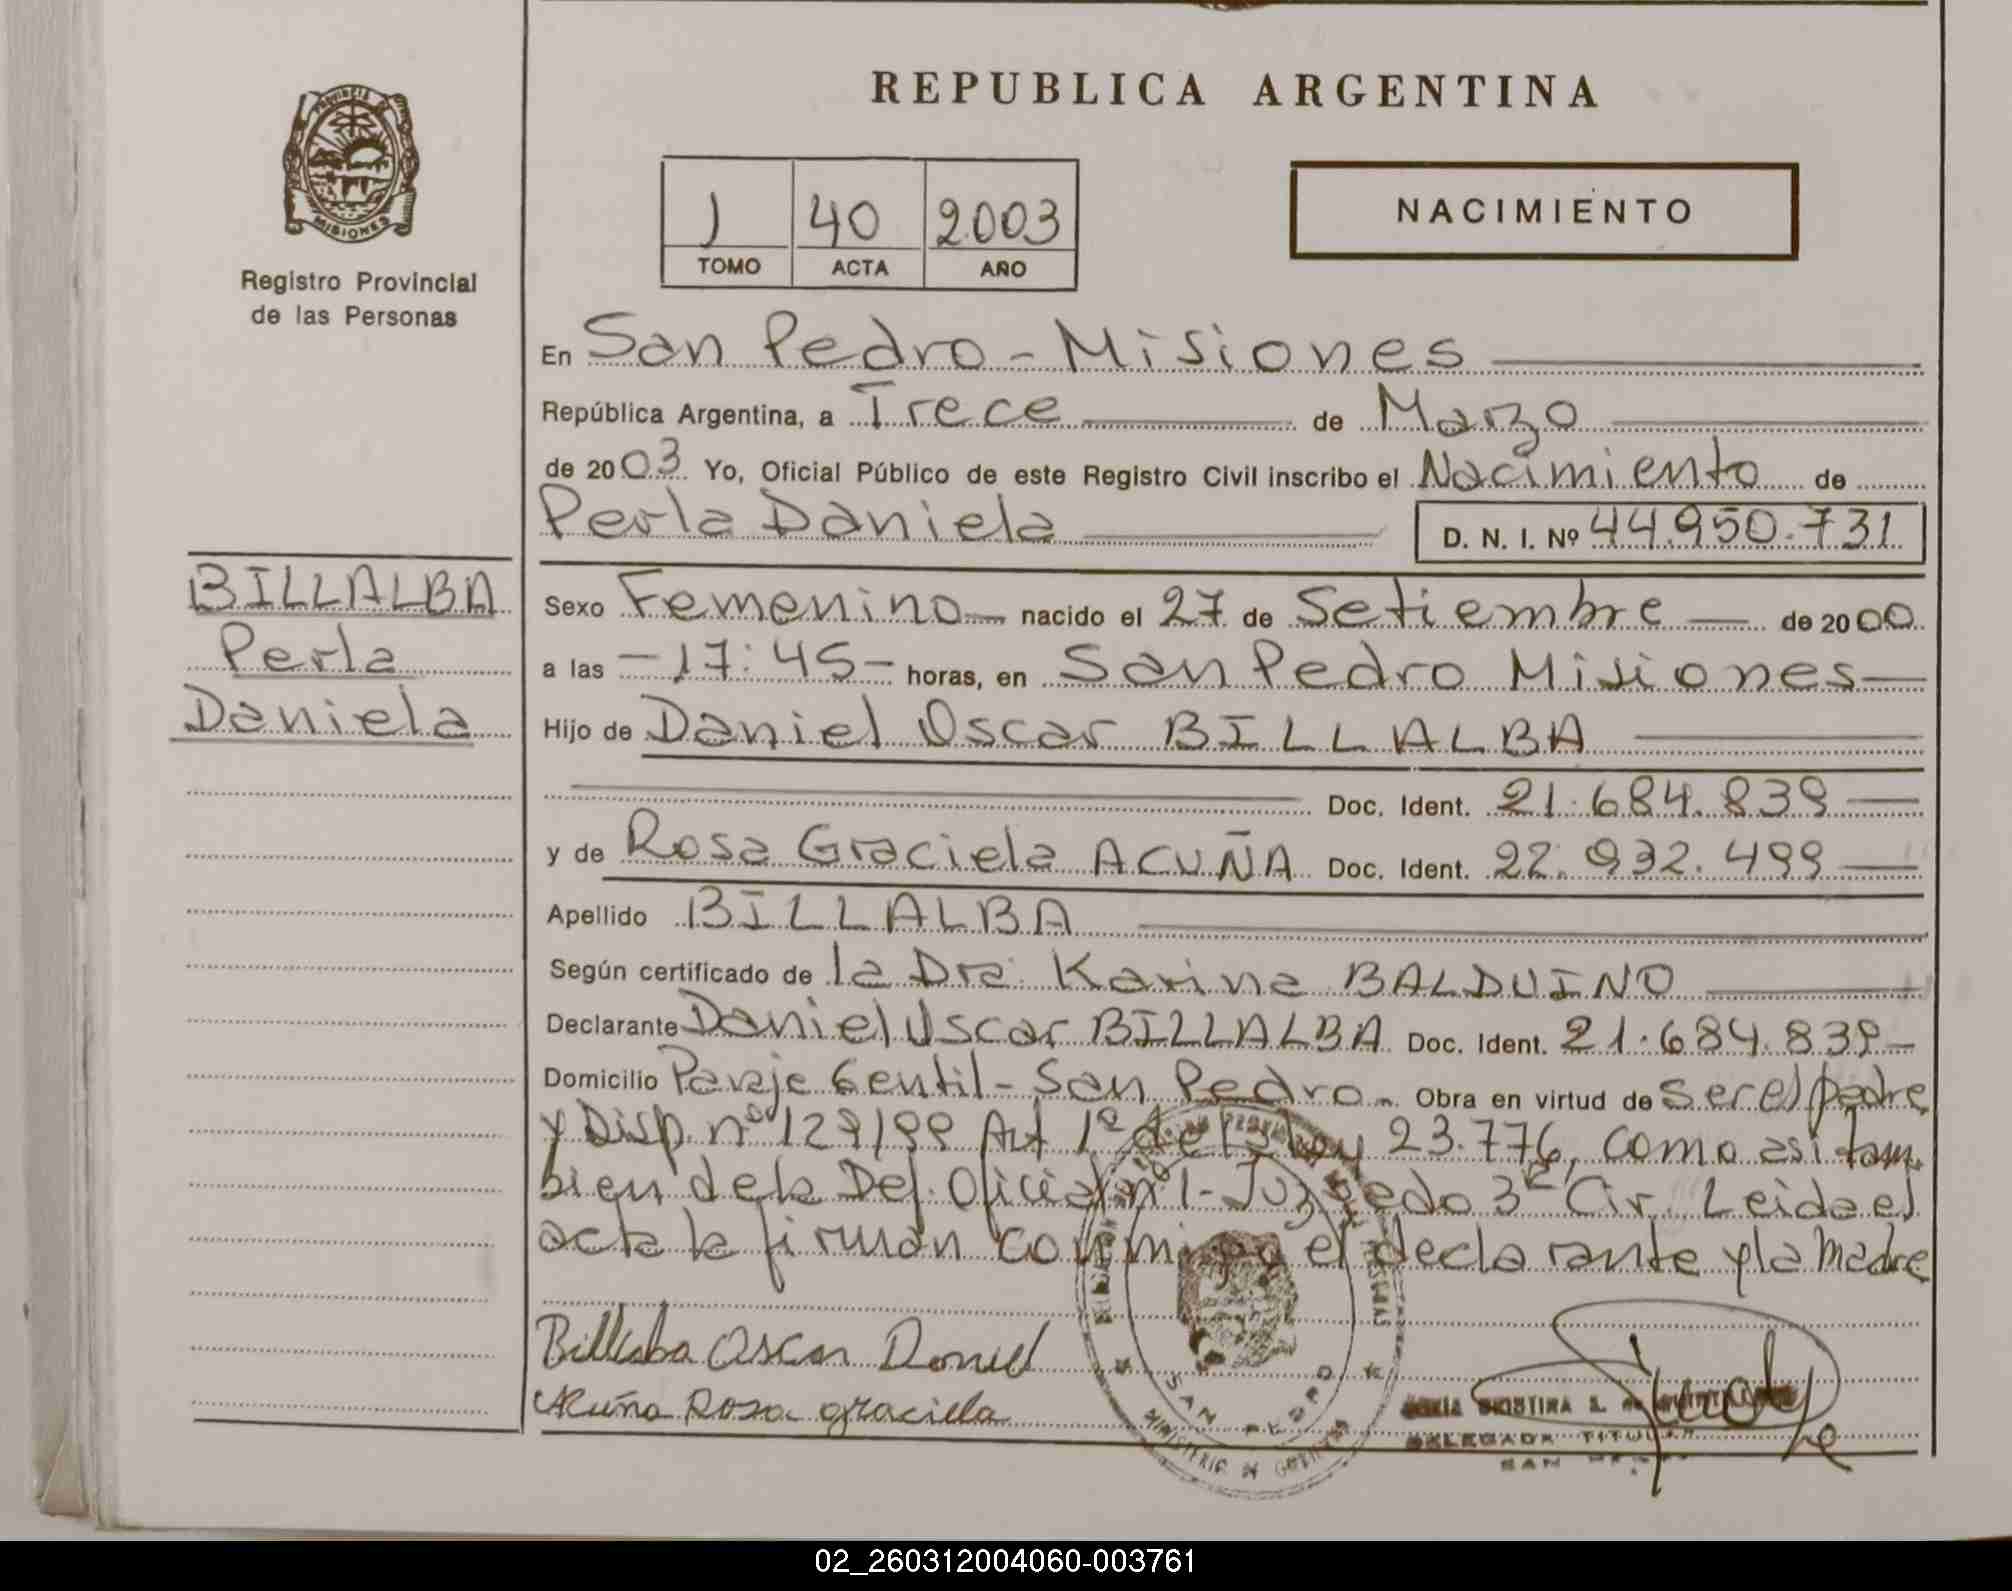 REPUBLICA ARGENTINA
PROVINCIA DE
MISIONES
Registro Provincial
de las Personas
1 40 2003
TOMO ACTA AÑO
NACIMIENTO
En San Pedro - Misiones
República Argentina, a Trece de Marzo
de 2003 Yo, Oficial Público de este Registro Civil inscribo el Nacimiento de
Perla Daniela D. N. I. Nº 44.950.731
BILLALBA
Perla
Daniela
Sexo Femenino nacido el 27 de Setiembre de 2000
a las - 17:45 - horas, en San Pedro Misiones
Hijo de Daniel Oscar BILLALBA
Doc. Ident. 21.684.839
y de Rosa Graciela ACUÑA Doc. Ident. 22.932.499
Apellido BILLALBA
Según certificado de la Dra. Karina BALDUINO
Declarante Daniel Oscar BILLALBA Doc. Ident. 21.684.839
Domicilio Paraje Gentil - San Pedro. Obra en virtud de ser el padre
y Disp. nº 129/99 Art 1º de la Ley 23.776, como asi tam-
bien de la Def. Oficial nº 1 - Juzgado 3ª Cir. Leida el
acta la firman conmigo el declarante y la Madre
Billalba Oscar Daniel
Acuña Rosa graciela
SAN PEDRO
MINISTERIO DE GOBIERNO
CRISTINA S. de
DELEGADA TITULAR
SAN PEDRO
02_260312004060-003761